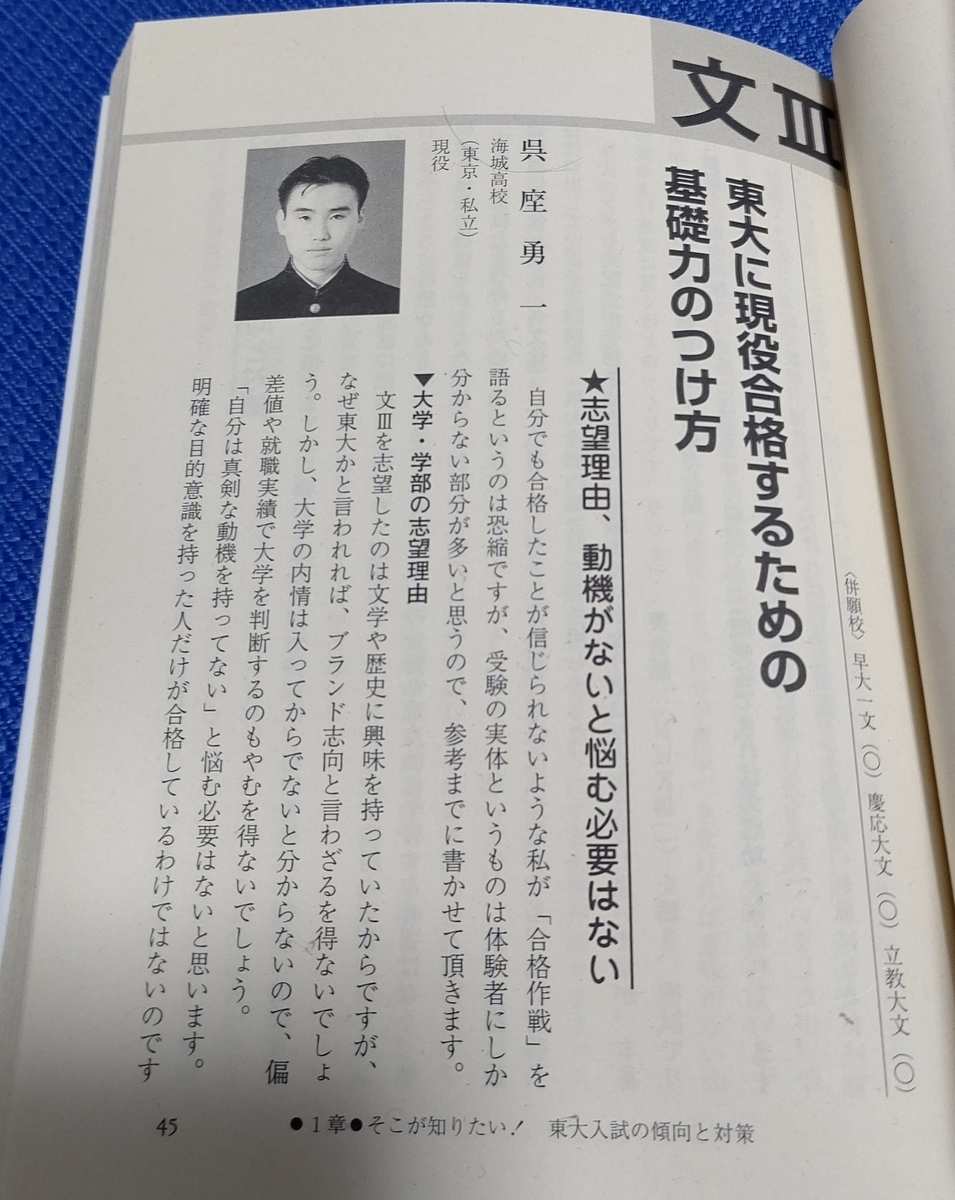 文Ⅲ
〈併願校〉早大一文（○）慶応大文（○）立教大文（○）
東大に現役合格するための
基礎力のつけ方
呉座勇一
海城高校
（東京・私立）
現役
★志望理由、動機がないと悩む必要はない
自分でも合格したことが信じられないような私が「合格作戦」を
語るというのは恐縮ですが、受験の実体というものは体験者にしか
分からない部分が多いと思うので、参考までに書かせて頂きます。
▼大学・学部の志望理由
文Ⅲを志望したのは文学や歴史に興味を持っていたからですが、
なぜ東大かと言われれば、ブランド志向と言わざるを得ないでしょ
う。しかし、大学の内情は入ってからでないと分からないので、偏
差値や就職実績で大学を判断するのもやむを得ないでしょう。
「自分は真剣な動機を持ってない」と悩む必要はないと思います。
明確な目的意識を持った人だけが合格しているわけではないのです
45
●1章●そこが知りたい！ 東大入試の傾向と対策